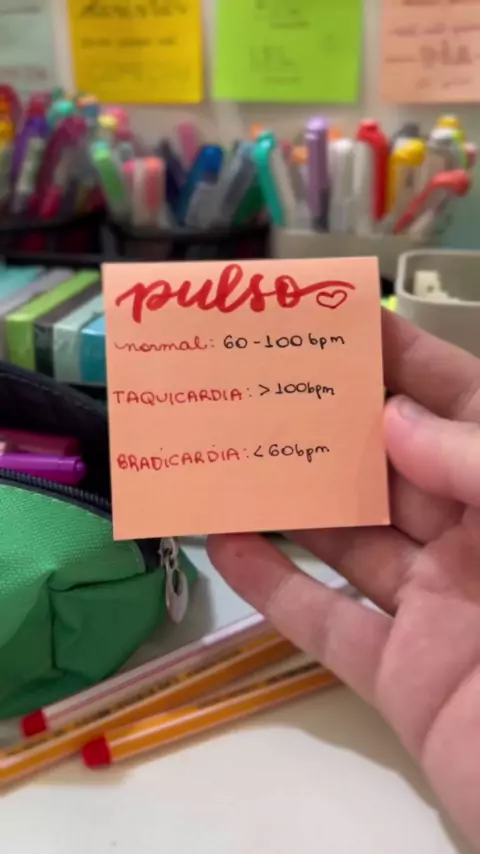 pulso
normal: 60-100bpm
TAQUICARDIA: >100bpm
BRADICARDIA: <60bpm